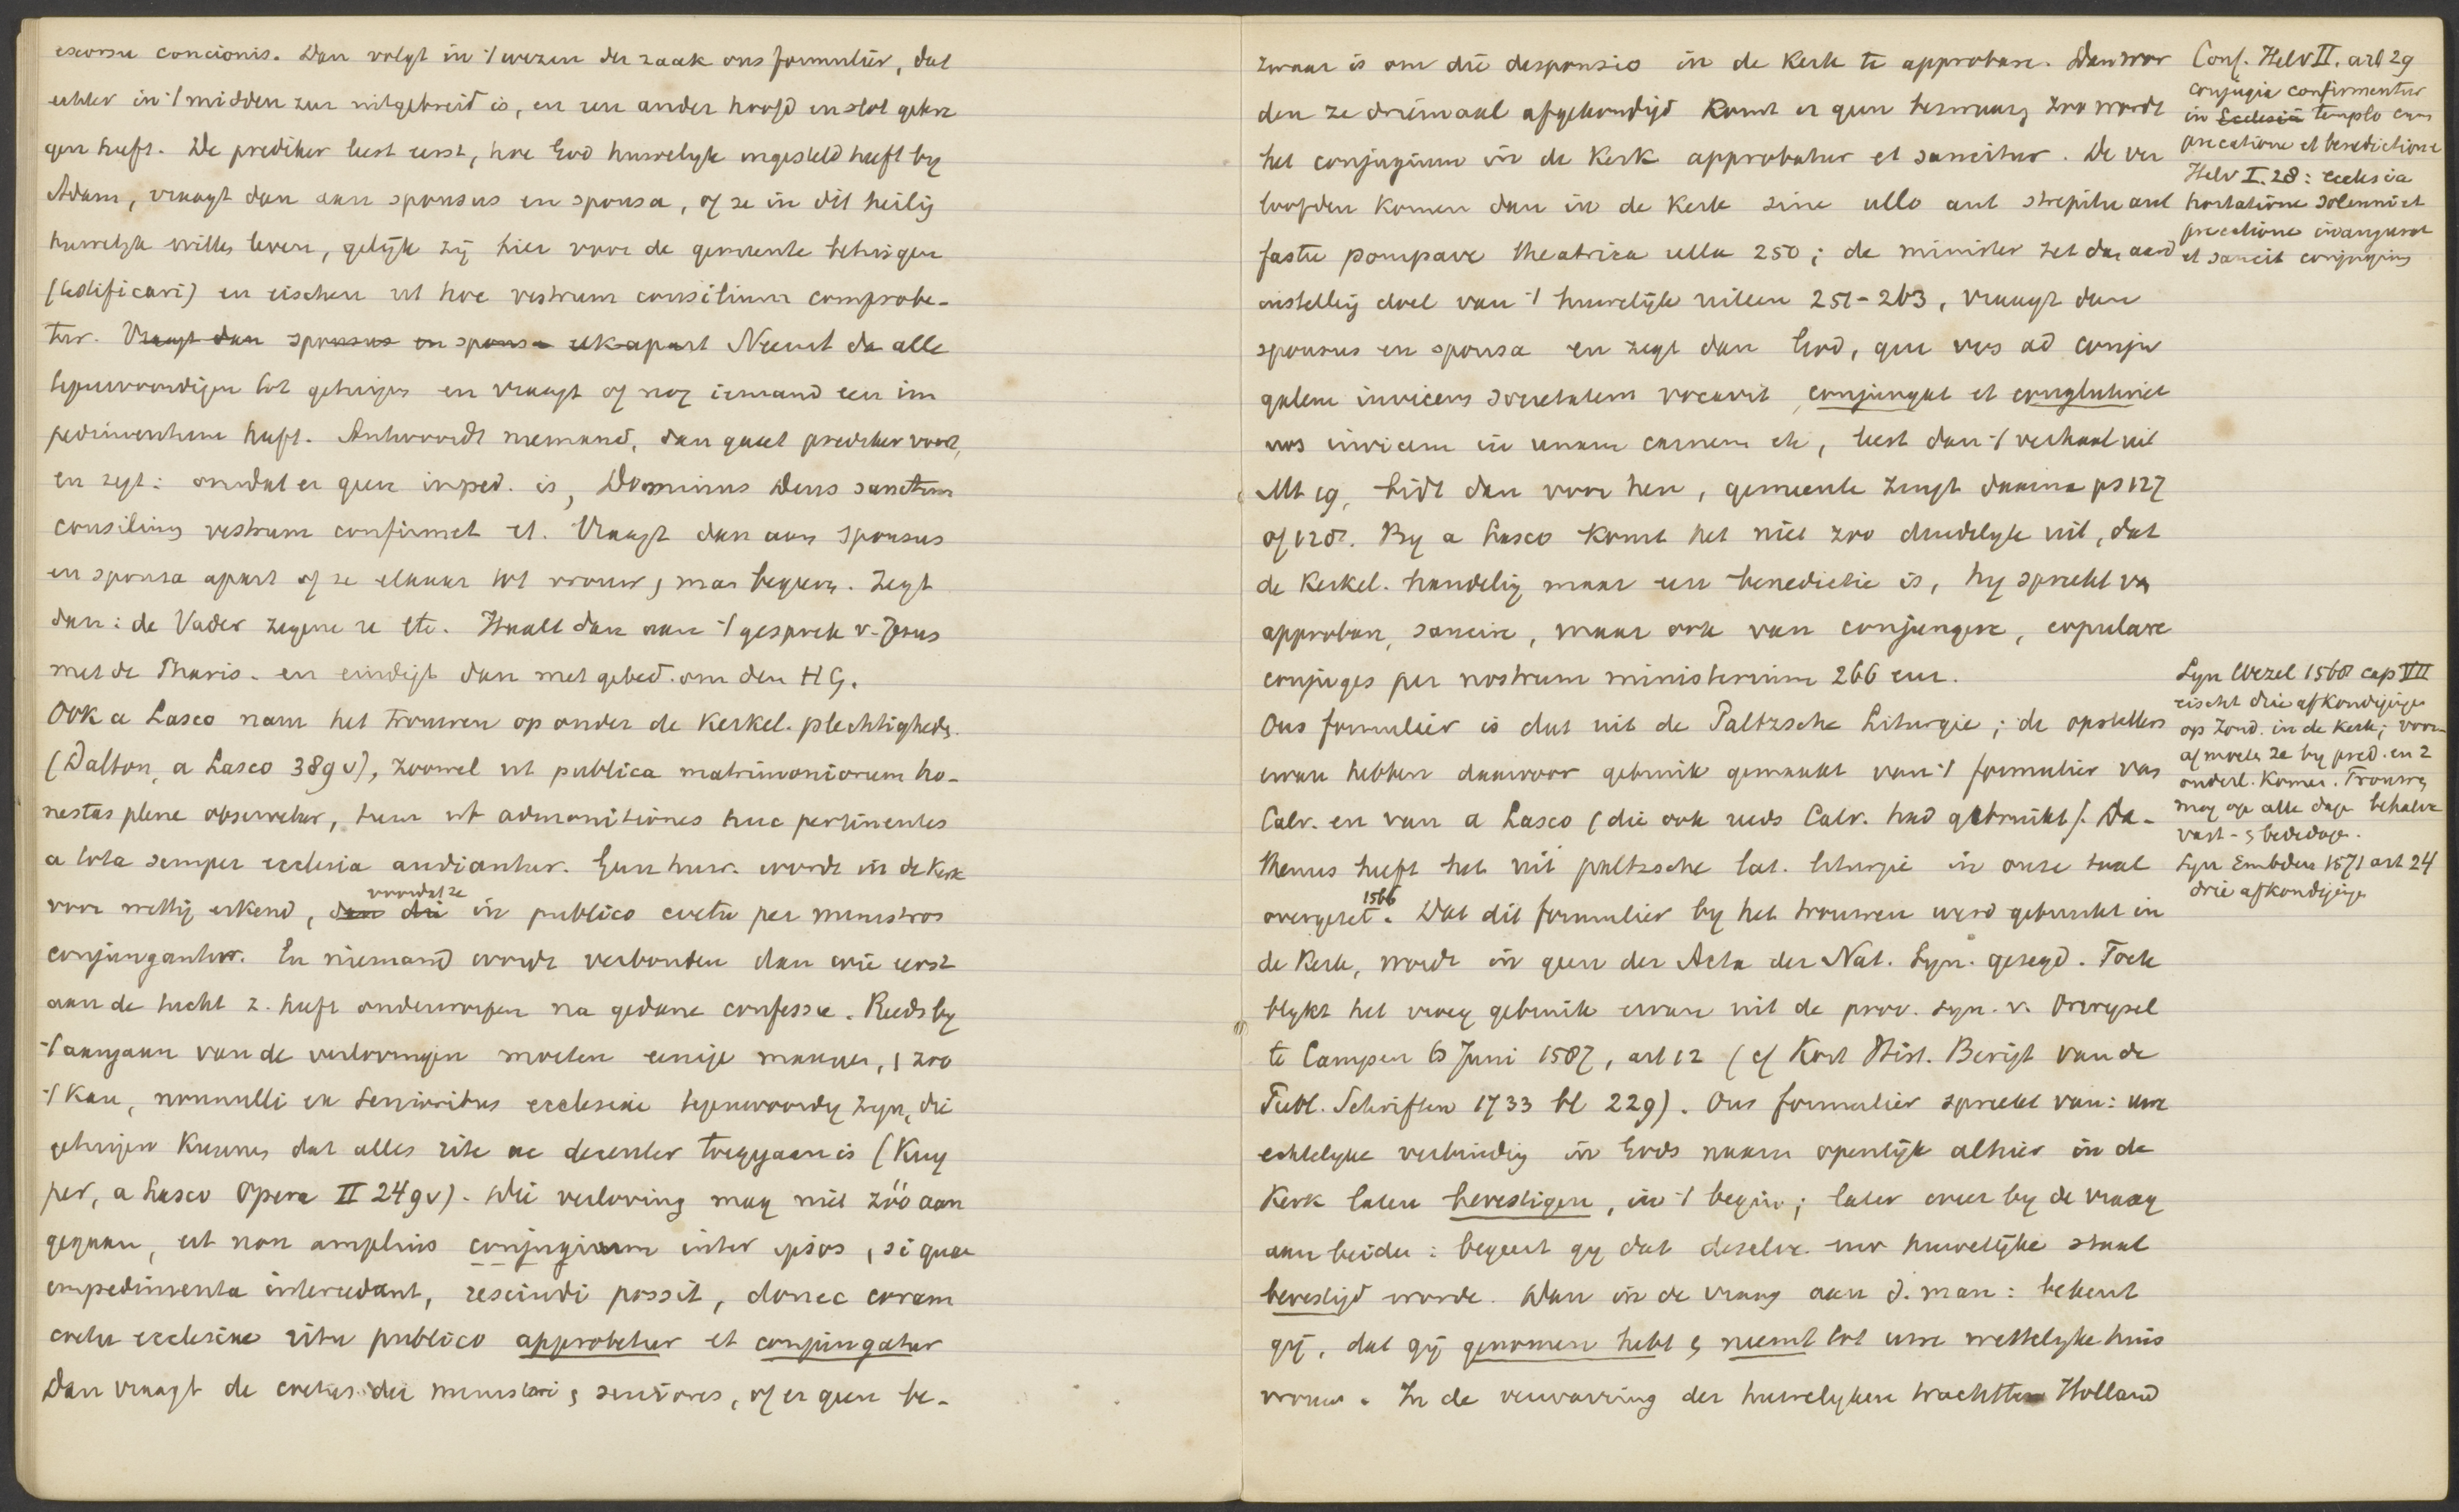 excursu concionis. Dan volgt in 't wezen der zaak ons formulier, dat
echter in 't midden zeer uitgebreid is, en een ander hoofd en slot gekre
gen heeft. De prediker leest eerst, hoe God huwelyk ingesteld heeft by
Adam, vraagt dan aan sponsus en sponsa, of ze in dit heilig
huwelyk willen leven, gelijk zij hier voor de gemeente betuigen
(testificari) en eischen ut hoc vestrum consilium comprobe-
tur. Vraagt dan sponsus en sponsa elk apart Neemt da alle
tegenwoordigen tot getuigen en vraagt of nog iemand een im
pedimentum heeft. Antwoordt niemand, dan gaat prediker voort,
en zegt: omdat er geen imped. is, Dominus Deus sanctum
consilium vestrum confirmet et. Vraagt dan aan sponsus
en sponsa apart of ze elkaar tot vrouw, man begeeren. Zegt
dan: de Vader zegene u etc. Haalt dan aan 't gesprek v. Jezus
met de Pharis. en eindigt dan met gebed om den HG.
Ook a Lasco nam het trouwen op onder de kerkel. plechtigheden.
(Dalton, a Lasco 389 v), zoowel ut publica matrimoniorum ho-
nestas plene observetur, tum ut admonitiones huc pertinentes
a tota semper ecclesia audiantur. Geen huw. wordt in de kerk
voor wettig erkend, dan die voordat ze in publico coetu per ministros
conjungantur. En niemand wordt verbonden dan wie eerst
aan de tucht z. heeft onderworpen na gedane confessie. Reeds by
't aangaan van de verlovingen moeten eenige mannen, zoo
't kan, nonnulli ex senioribus ecclesiae tegenwoordig zyn, die
getuigen kunnen dat alles rite ac decenter toegegaan is (Kuy
per, a Lasco Opera II 249 v). Die verloving mag niet zóó aan
gegaan, ut non amplius conjugium inter ipsos, si quae
impedimenta intercedant, rescindi possit, donec coram
coetu ecclesiae ritu publico approbetur et conjungatur
Dan vraagt de coetus der ministri, seniores, of er geen be-
zwaar is om die desponsio in de kerk te approbare. Dan wor
den ze driemaal afgekondigd Komt er geen bezwaar, zoo wordt
het conjugium in de kerk approbatur et sancitur. De ver
loofden komen dan in de kerk sine ullo aut strepitu aut
fastu pompave theatrica ulla 250; de minister zet dan aard
instelling doel van 't huwelijk uiteen 251-263, vraagt dan
sponsus en sponsa en zegt dan God, qui vos ad conju
galem invicem societatem vocavit conjungat et conglutinet
vos invicem in unam carnem etc, leest dan 't verhaal uit
Mt 19, bidt dan voor hen, gemeente zingt daarna ps 127
of 128. By a Lasco komt het niet zoo duidelyk uit, dat
de kerkel. handeling maar een benedictie is, hy spreekt van
approbare, sancire, maar ook van conjungere, copulare
conjuges per nostrum ministerium 266 enz.
Ons formulier is dat uit de Paltzsche Liturgie; de opstellers
ervan hebben daarvoor gebruik gemaakt van 't formulier van
Calv. en van a Lasco (die ook reeds Calv. had gebruikt). Da-
thenus heeft het uit paltzsche lat. liturgie in onze taal
overgezet 1566. Dat dit formulier by het trouwen werd gebruikt in
de kerk, wordt in geen der Acta der Nat. Syn. gezegd. Toch
blykt het vroeg gebruik ervan uit de prov. syn. v. Overysel
te Campen 6 Juni 1587, art 12 (cf Kort Hist. Berigt van de
Publ. Schriften 1733 bl 229). Ons formulier spreekt van: uwe
echtelyke verbinding in Gods naam openlijk alhier in de
Kerk laten bevestigen, in 't begin; later weer by de vraag
aan beiden: begeert gy dat dezelve uw huwelijke staat
bevestigd worde. Dan in de vraag aan d. man: bekent
gij, dat gij genomen hebt, neemt tot uwe wettelyke huis
vrouw. In de verwarring der huwelyken trachtten Holland
Conf. Helv II. art 29
conjugia confirmentur
in Ecclesia templo cum
precatione et benedictione
Helv I. 28: ecclesia
hortatione solenni et
precatione inaugurat
et sancit conjugium
Syn Wezel 1568 cap VII
eischt drie afkondigingen
op Zond. in de kerk; vooraf
moeten ze by pred. en 2
ouderl. komen. Trouwen
mag op alle dagen behalve
vast- , bededagen.
Syn Embden 1571 art 24
drie afkondigingen